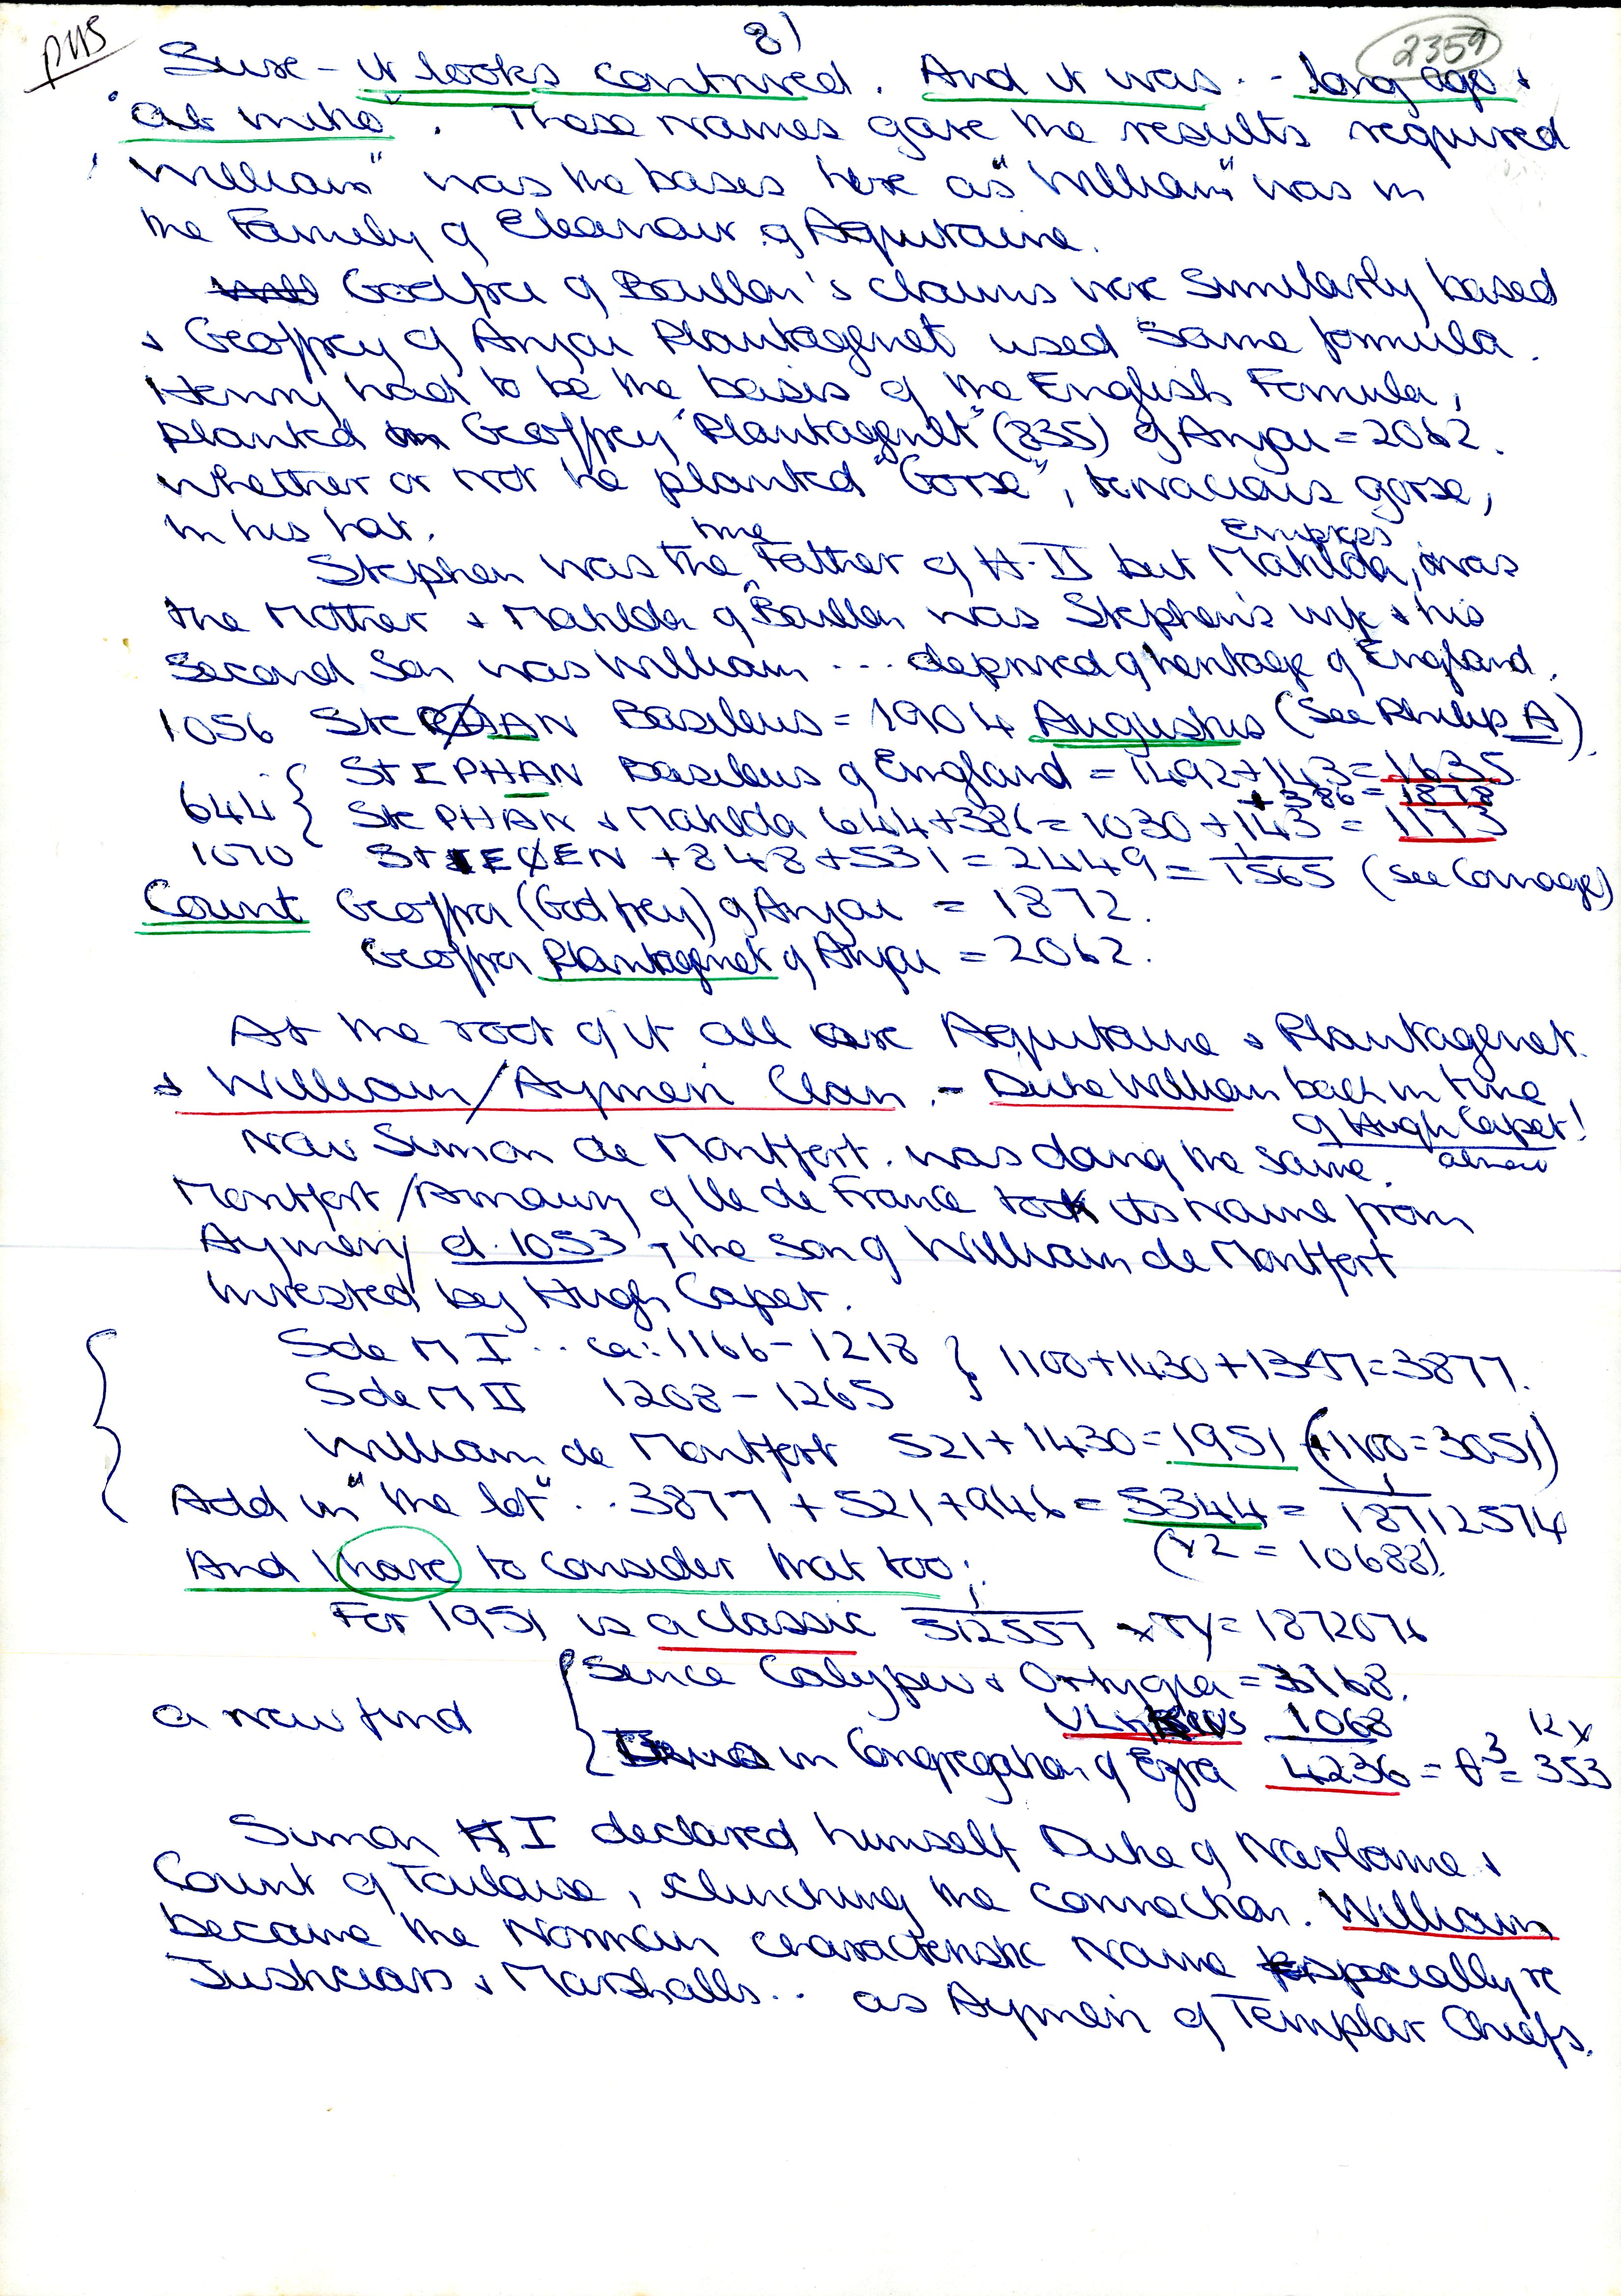 PMS
8)
2359
Sure - it looks contrived. And it was - - long ago &
"ab initio". These names gave the results required
"William" was the bases here as "William" was in
the Family of Eleanour of Aquitaine.
Godfrei of Boullon's claims were similarly based
& Geoffrey of Anjou Plantagenet used same formula.
Henry had to be the basis of the English Formula,
planted Geoffrey "Plantagenet" (835) of Anjou = 2062.
whether or not he planted "Gorse", tenacious gorse,
in his hat.
Stephen was the true Father of H.II but Empress Matilda, was
the Mother & Matilda of Boullon was Stephen's wife & his
second son was William ... deprived of heritage of England.
1056 StePHAN Basileus = 1904 Augustus (See Philip A)
STEPHAN Basileus of England = 1492+143=1635
+386=1878
644 { StePHAN & Matilda 644+386=1030+143=1173
1070 STEPEN +848+531=2449= 1/1565 (see Coinage)
Count Geoffroi (Godfrey) of Anjou = 1872.
Geoffroi Plantagenet of Anjou = 2062.
At the root of it all are Aquitaine & Plantagenet
& William/Aymeri Clan. - Duke William back in time
of Hugh Capet!
Now Simon de Montfort. was doing the same.
Montfort/Amaury of Ile de France took its name from
Aymery d.1053, the son of William de Montfort
invested by Hugh Capet.
S de M I .. ca: 1166-1218 } 1100+1430+1347=3877.
S de M II 1208-1265
William de Montfort 521+1430=1951 (+1100=3051)
Add in "the lot" .. 3877+521+946=5344= 1/18712574
(x2=10688)
And I have to consider that too:
For 1951 is a classic 1/512557 x Ty=1872076
a new find
Since Calypso & Ortygia = 3168.
1068
in Congregation of Ezra 4236 = θ³ = 353
12 x
Simon I declared himself Duke of Narbonne &
Count of Toulouse, clinching the connection. William
became the Norman characteristic name especially re
Justiciars & Marshalls.. as Aymeri of Templar Chiefs.